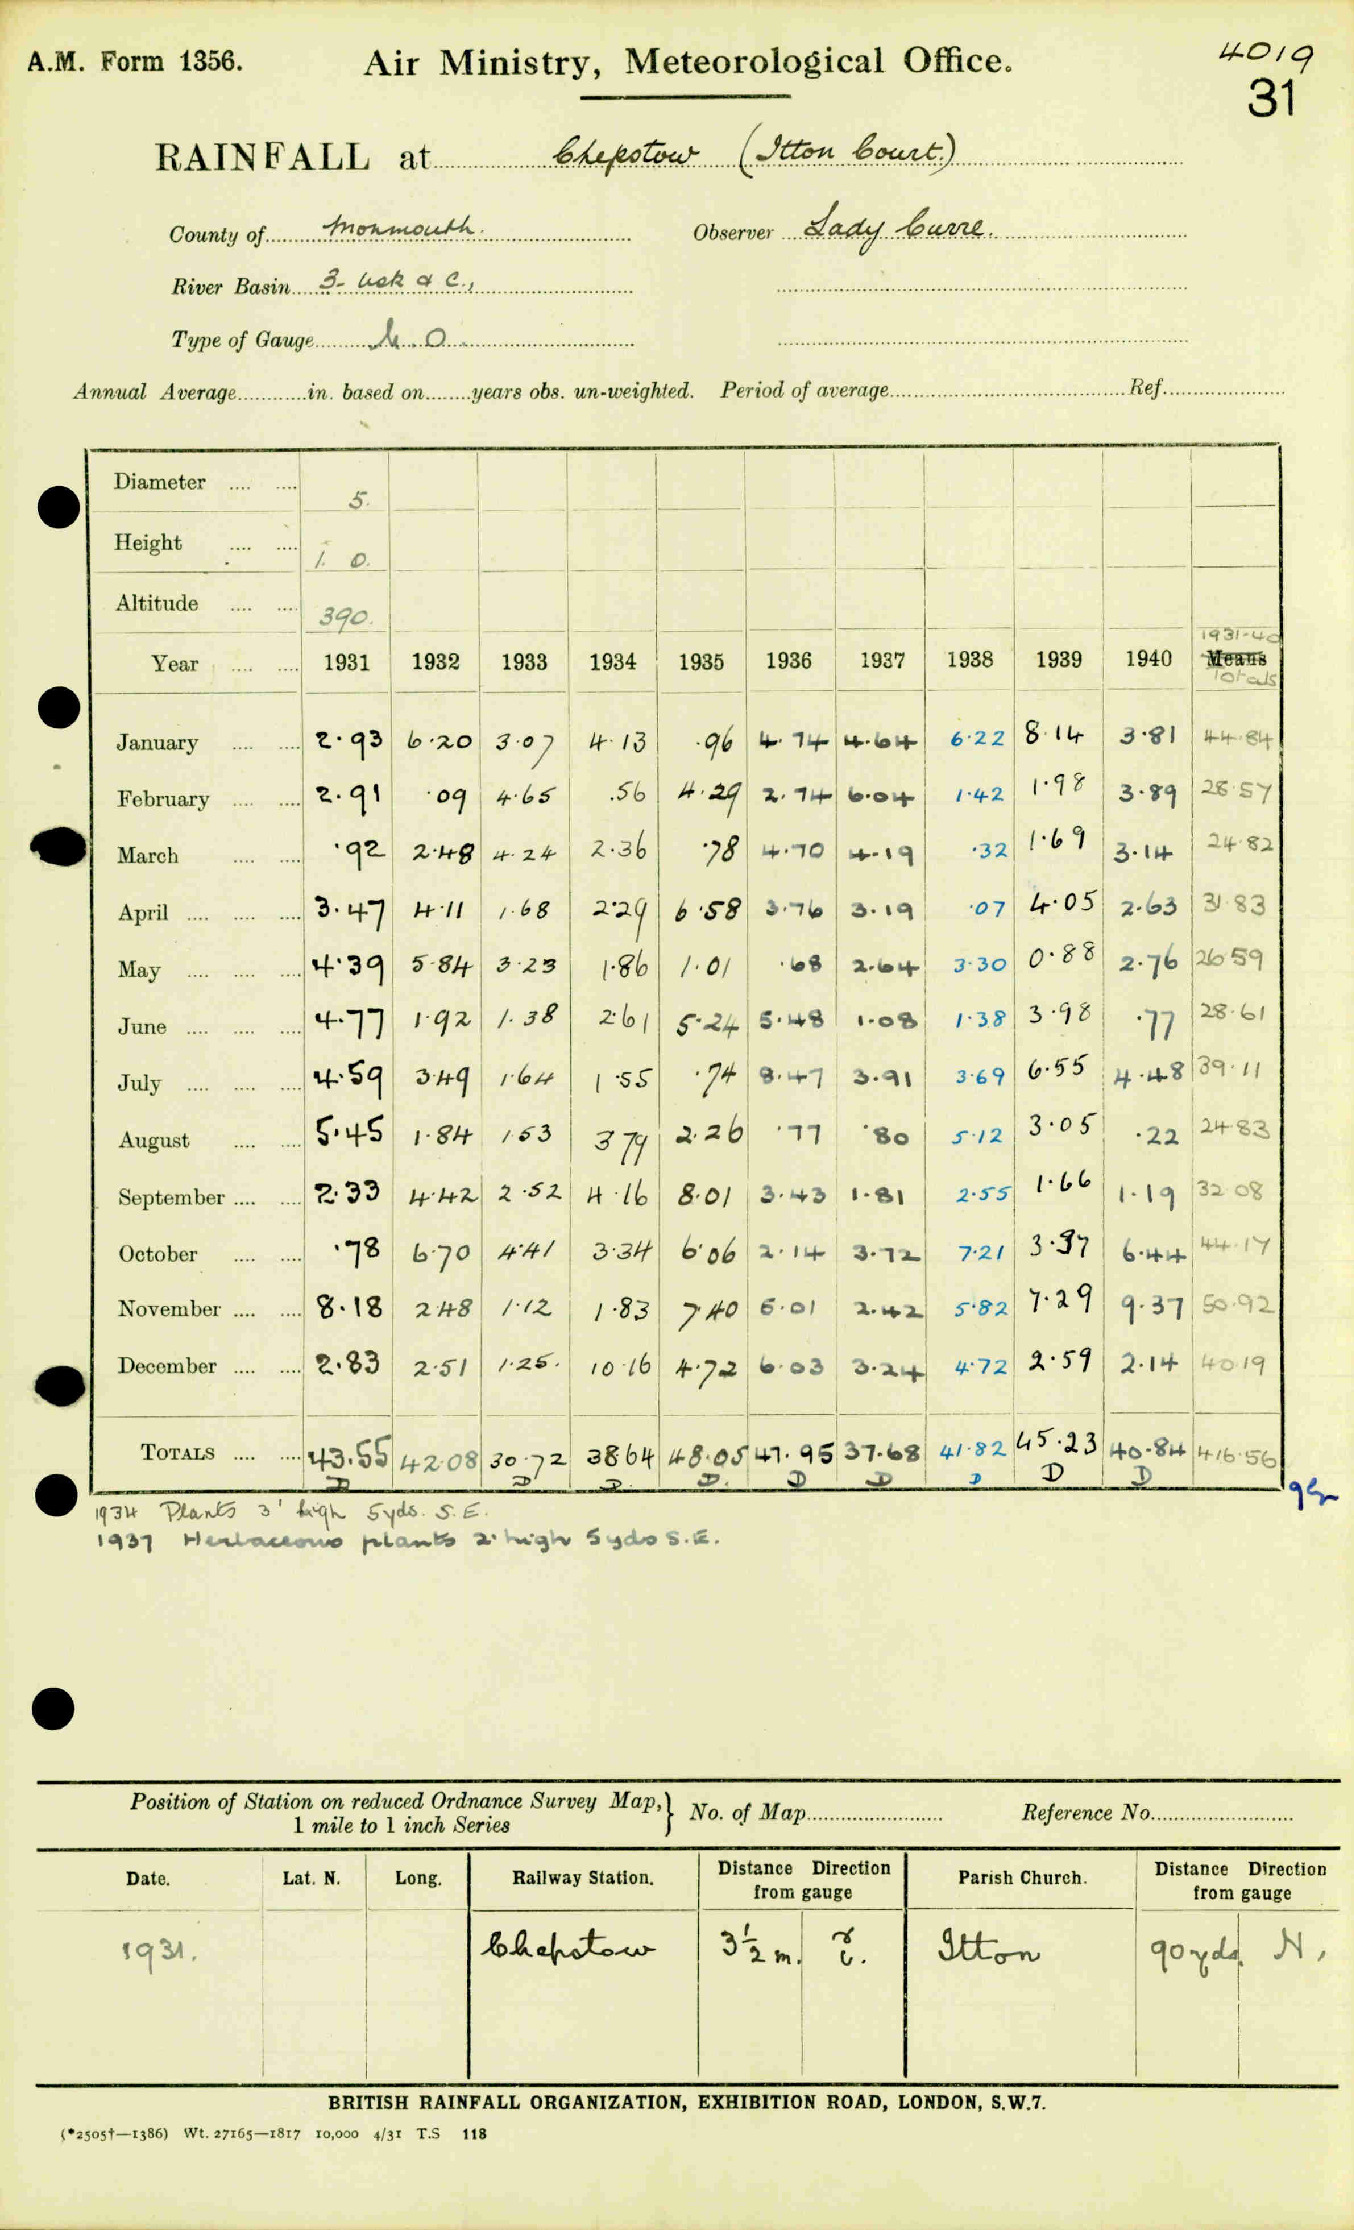 A.M. Form 1356. Air Ministry, Meteorological Office. 4019
31
RAINFALL at Chepstow (Itton Court.)
County of Monmouth. Observer Lady Curre.
River Basin 3- Usk & C.,
Type of Gauge M.O.
Annual Average in. based on years obs. un-weighted. Period of average Ref.
Diameter 5.
Height 1. 0.
Altitude 390.
1931-40
Year 1931 1932 1933 1934 1935 1936 1937 1938 1939 1940 Means
Totals
January 2.93 6.20 3.07 4.13 .96 4.74 4.64 6.22 8.14 3.81 44.84
February 2.91 .09 4.65 .56 4.29 2.74 6.04 1.42 1.98 3.89 28.57
March .92 2.48 4.24 2.36 .78 4.70 4.19 .32 1.69 3.14 24.82
April 3.47 4.11 1.68 2.29 6.58 3.76 3.19 .07 4.05 2.63 31.83
May 4.39 5.84 3.23 1.86 1.01 .68 2.64 3.30 0.88 2.76 26.59
June 4.77 1.92 1.38 2.61 5.24 5.48 1.08 1.38 3.98 .77 28.61
July 4.59 3.49 1.64 1.55 .74 8.47 3.91 3.69 6.55 4.48 39.11
August 5.45 1.84 1.53 3.79 2.26 .77 .80 5.12 3.05 .22 24.83
September 2.33 4.42 2.52 4.16 8.01 3.43 1.81 2.55 1.66 1.19 32.08
October .78 6.70 4.41 3.34 6.06 2.14 3.72 7.21 3.37 6.44 44.17
November 8.18 2.48 1.12 1.83 7.40 5.01 2.42 5.82 7.29 9.37 50.92
December 2.83 2.51 1.25. 10.16 4.72 6.03 3.24 4.72 2.59 2.14 40.19
TOTALS 43.55 42.08 30.72 38.64 48.05 47.95 37.68 41.82 45.23 40.84 416.56
D D D D. D D D D D
1934 Plants 3' high 5yds. S.E.
1937 Herbaceous plants 2' high 5yds S.E.
Position of Station on reduced Ordnance Survey Map, } No. of Map Reference No.
1 mile to 1 inch Series
Date. Lat. N. Long. Railway Station. Distance Direction from gauge Parish Church. Distance Direction from gauge
1931. Chepstow 3½ m. Itton 90 yds. N.
BRITISH RAINFALL ORGANIZATION, EXHIBITION ROAD, LONDON, S.W.7.
(*2505†—1386) Wt. 27165—1817 10,000 4/31 T.S 118